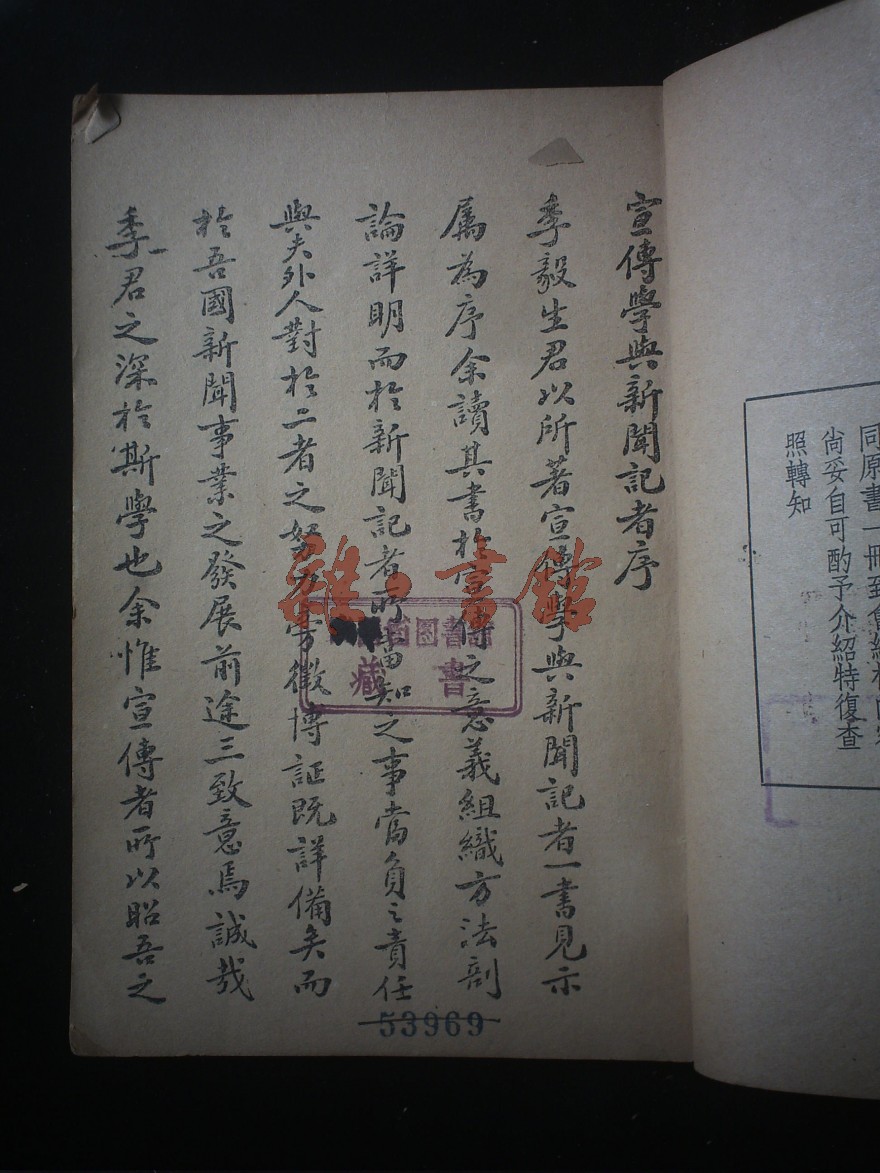 同原書一冊到會經
尚妥自可酌予介紹特復查
照轉知
宣傳學與新聞記者序
季毅生君以所著宣傳學與新聞記者一書見示
屬為序余讀其書於宣傳之意義組織方法剖
論詳明而於新聞記者所當知之事當負之責任
與夫外人對於二者之努力旁徵博証既詳備矣而
於吾國新聞事業之發展前途三致意焉誠哉
季君之深於斯學也余惟宣傳者所以昭吾之
雜書館
圖書
藏書
53969